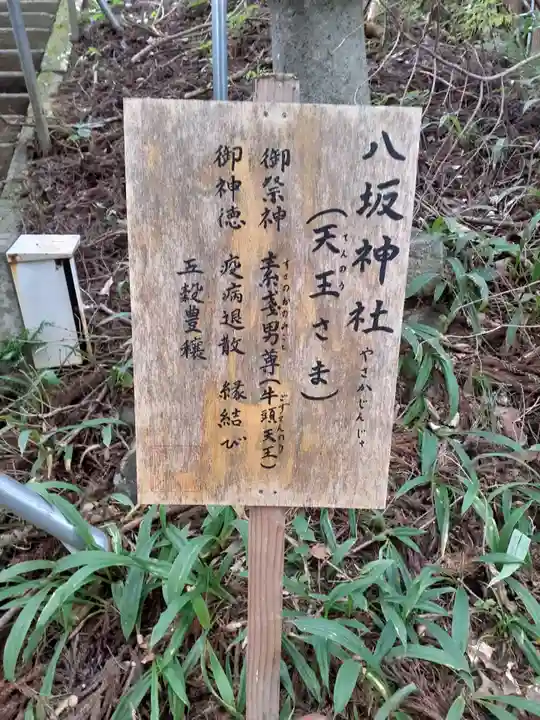 八坂神社 やさかじんじゃ
(天王さま) てんのう
御祭神 素戔男尊(牛頭天王) すさのおのみこと ごずてんのう
御神徳 疫病退散 縁結び
五穀豊穣